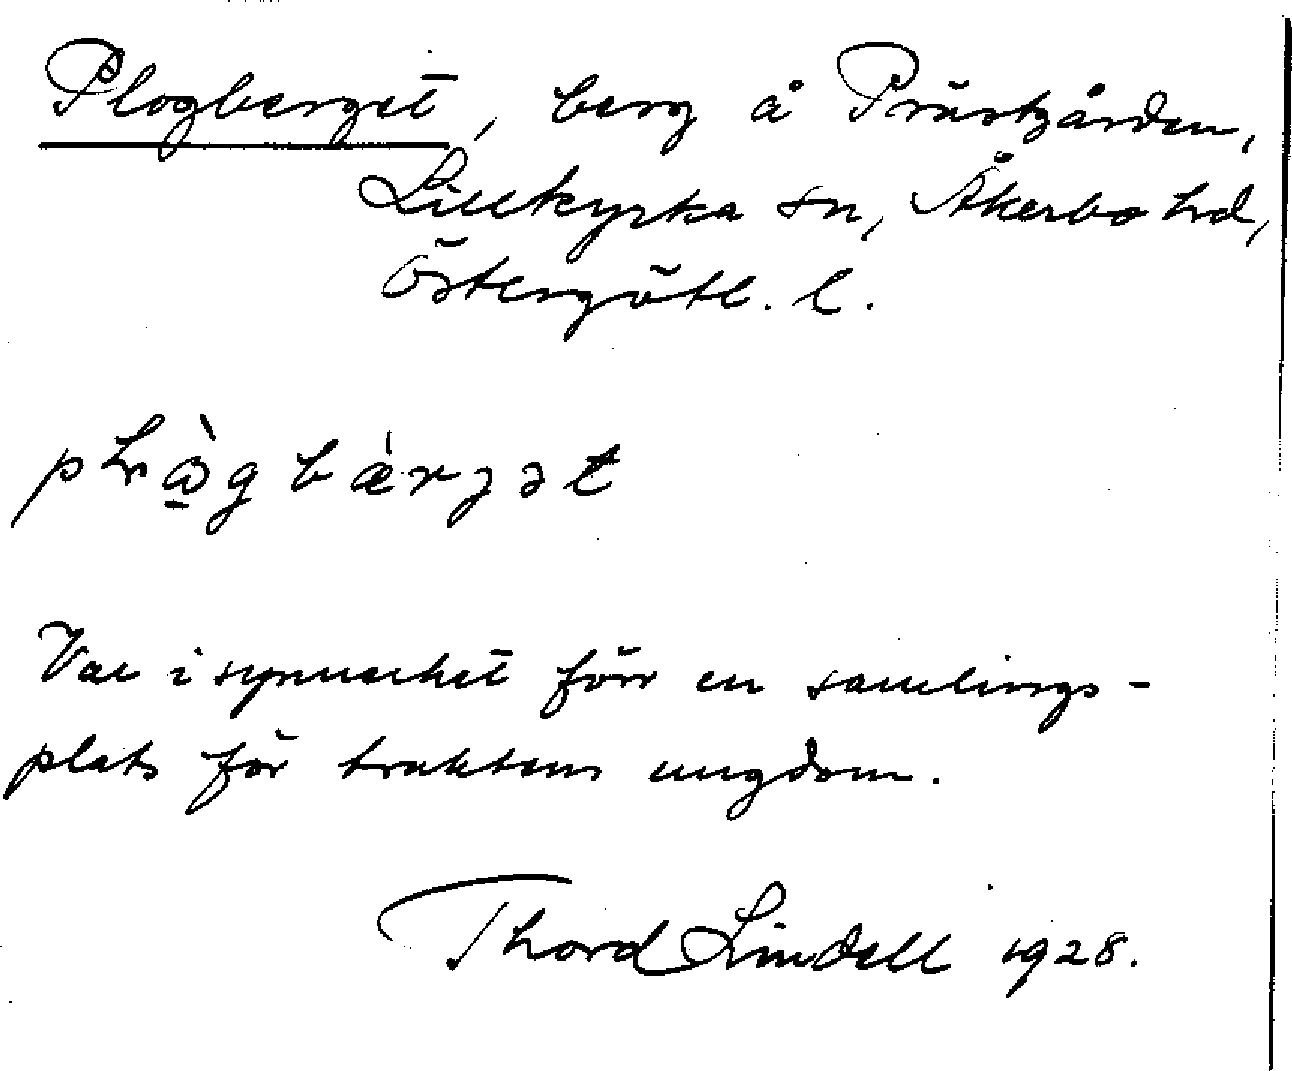 Plogberget, berg å Prästgården,
Lillkyrka sn, Åkerbo hd,
Östergötl. l.
plὼgbæ̀rjət
Var i synnerhet förr en samlings-
plats för traktens ungdom.
Thord Lindell 1928.